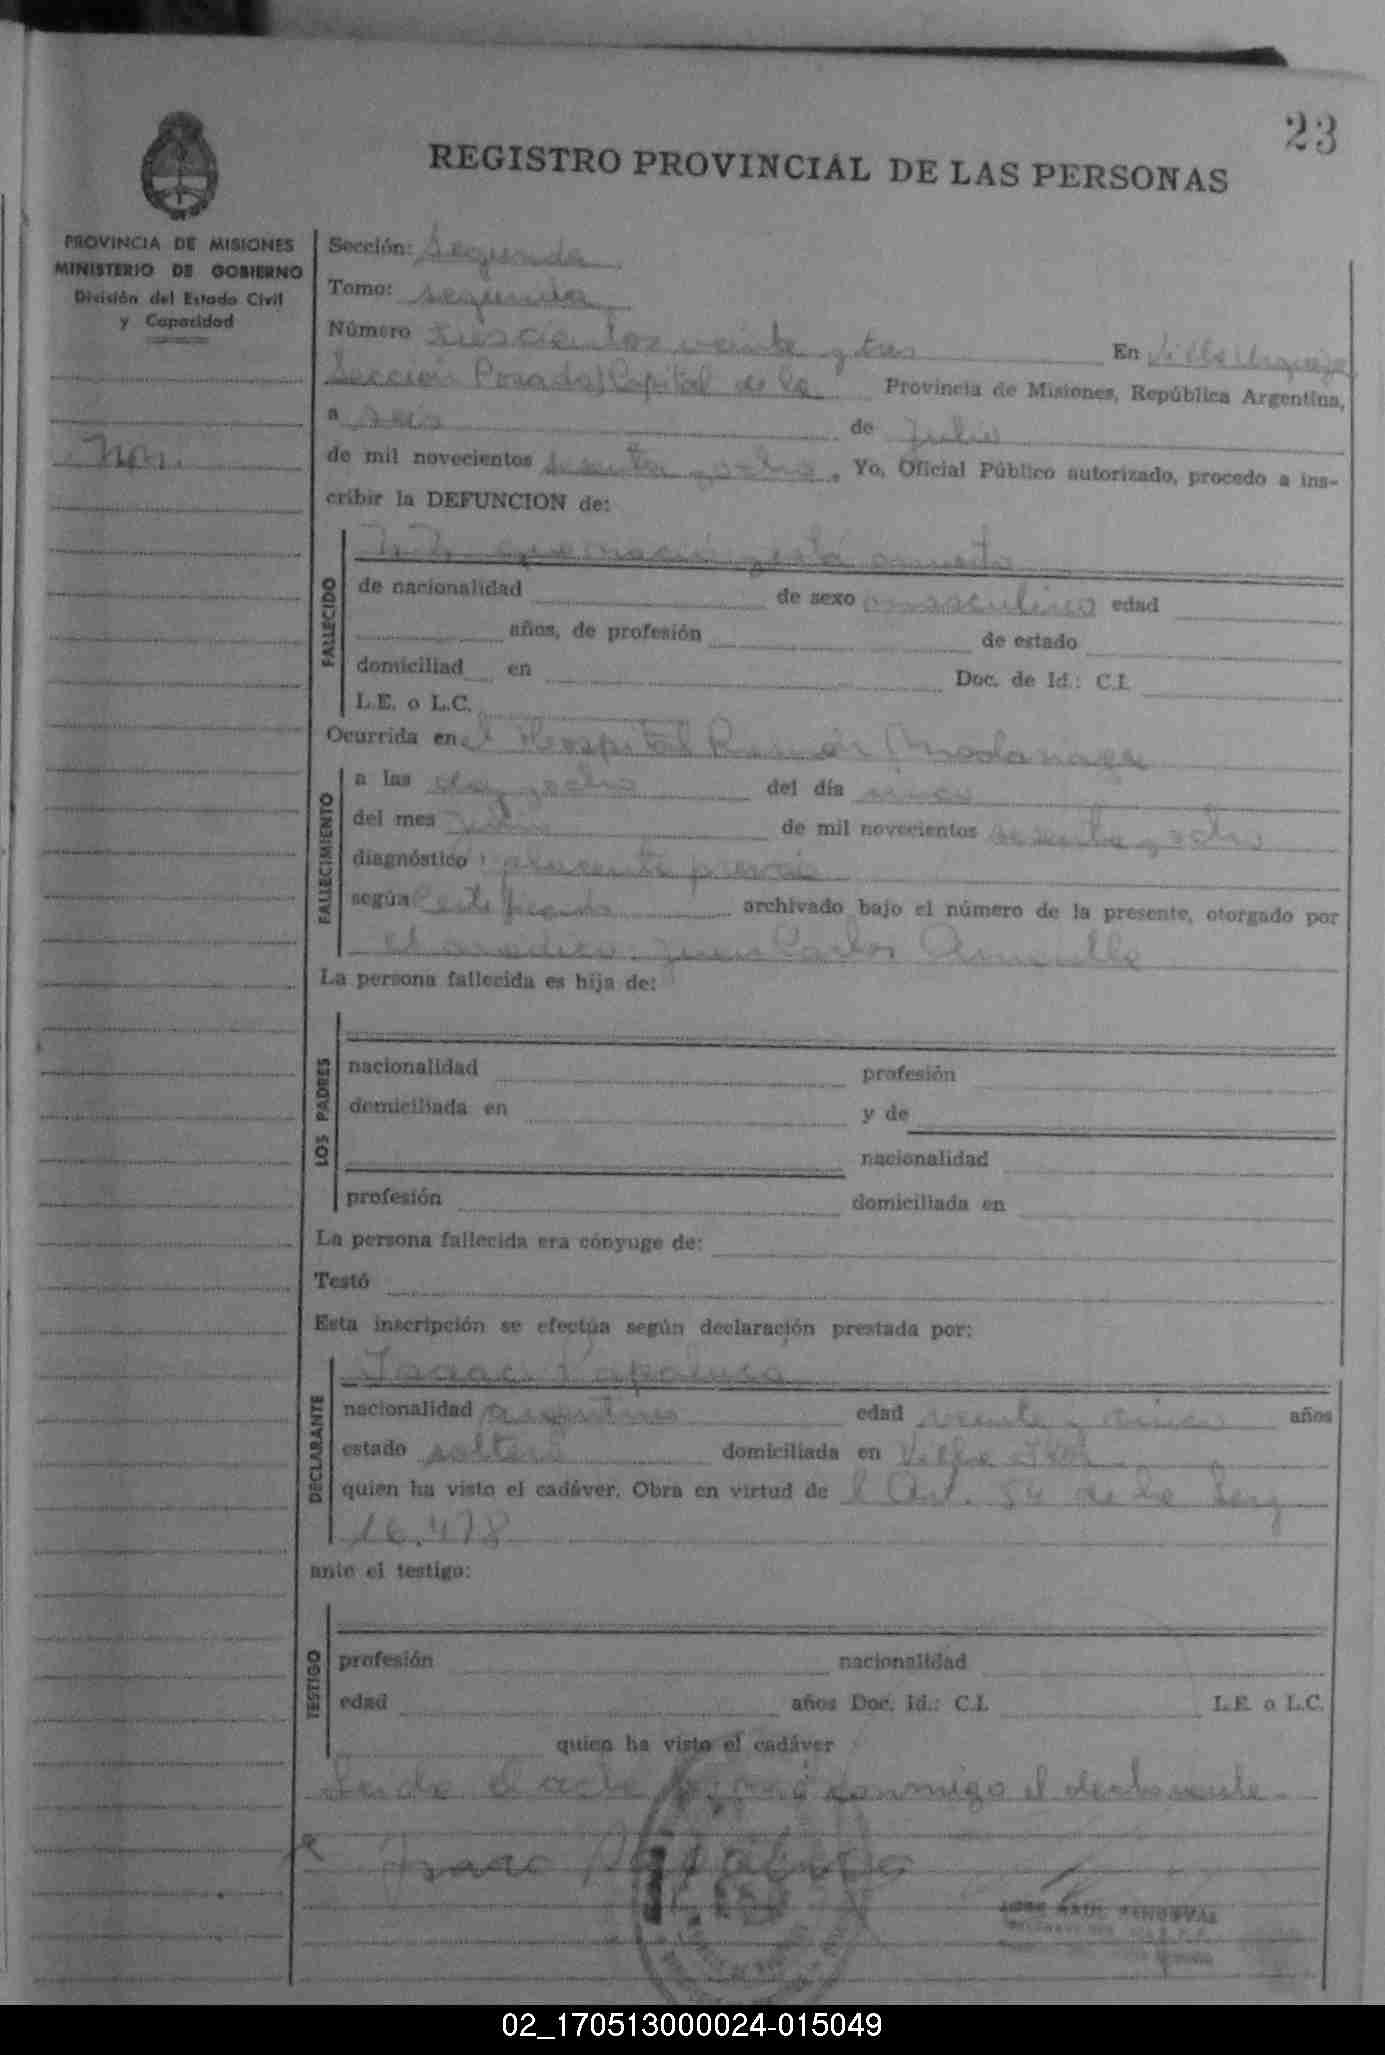 23
REGISTRO PROVINCIAL DE LAS PERSONAS
PROVINCIA DE MISIONES
MINISTERIO DE GOBIERNO
División del Estado Civil
y Capacidad
Nn.
Sección: Segunda
Tomo: segunda
Número trescientos veinte y tres En Villa Urquiza
Sección Posadas Capital de la Provincia de Misiones, República Argentina,
a seis de Julio
de mil novecientos sesenta y ocho. Yo, Oficial Público autorizado, procedo a ins-
cribir la DEFUNCION de:
FALLECIDO
N.N. que nació y está muerto
de nacionalidad de sexo masculino edad
años, de profesión de estado
domiciliad en Doc. de Id.: C.I.
L.E. o L.C.
Ocurrida en el Hospital Ramón Madariaga
FALLECIMIENTO
a las diez y ocho del día cinco
del mes Julio de mil novecientos sesenta y ocho
diagnóstico placenta previa
según Certificado archivado bajo el número de la presente, otorgado por
el medico Juan Carlos
La persona fallecida es hija de:
LOS PADRES
nacionalidad profesión
domiciliada en y de
nacionalidad
profesión domiciliada en
La persona fallecida era cónyuge de:
Testó
Esta inscripción se efectúa según declaración prestada por:
DECLARANTE
Isaac Papaluca
nacionalidad argentino edad veinte y cinco años
estado soltero domiciliada en Villa
quien ha visto el cadáver. Obra en virtud de l Art. 54 de la Ley
16.478
ante el testigo:
TESTIGO
profesión nacionalidad
edad años Doc. Id.: C.I. L.E. o L.C.
quien ha visto el cadáver
Leida el acta firmó conmigo el declarante.
Isaac Papaluca
JOSE RAUL SANDOVAL
02_170513000024-015049